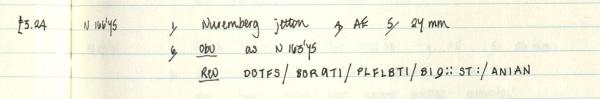 £3.24 N 166'45 1, Nuremberg jetton 4, AE 5, 24 mm
6, Obv as N 163'45
Rev DOTFS/ BORATI/ PLFLBTI/ BID:: ST:/ ANIAN